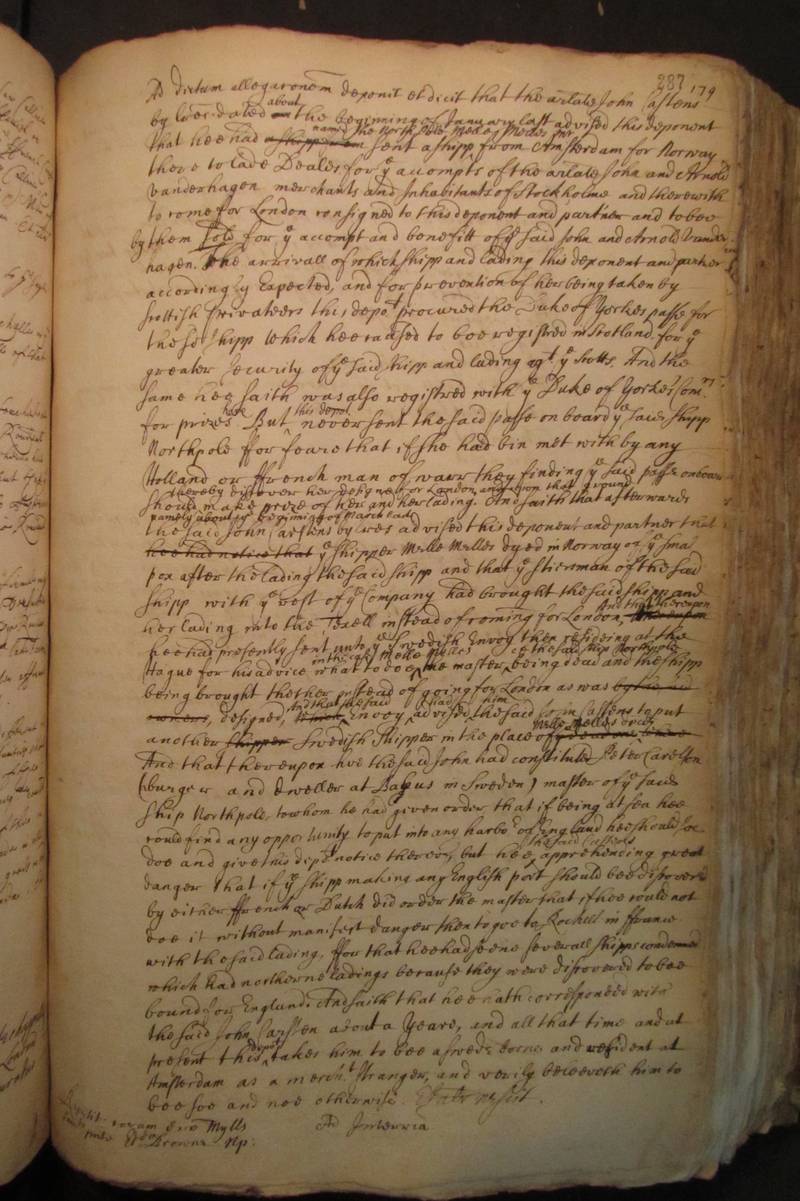 287 179
Ad dictum allegationem deponit et dicit that the arlate John Castens
by lres dated about the beginning of January last advised this deponent
that hee had sent a shipp named the North Pole Melle Melles mr from Amsterdam for Norway
there to lade Deales for ye accompts of the arlate John and Arnold
Vanderhagen merchants and Inhabitants of Stockholme and therewith
to come for London consigned to this deponent and partner and to bee
by them sold for ye accompt and benefitt of ye said John and Arnold Vander
hagen. The arrivall of which shipp and lading this deponent and partner
accordingly Expected, and for prevention of her being taken by
Scottish privateers this depot procured the Duke of Yorkes passe for
the sd shipp which hee caused to bee registred in Scotland for ye
greater security of ye said shipp and lading agt ye Scotts. And the
same hee saith was also registred with ye Duke of Yorkes Comrs
for prizes here But this depot never sent the said passe on board ye said shipp
Northpole ffor feare that if she had bin met with by any
Holland or ffrench man of warr they finding ye said passe onboard
thereby discover her designe for London and upon that ground
should make prize of her and her lading. And saith that afterwards
namely about ye beginning of March last
the said John Carstens by lres advised this deponent and partner that
hee had notice that ye skipper Melle Melles dyed in Norway of ye small
pox after the lading the said shipp and that ye stiersman of the said
shipp with ye rest of ye Company had brought the said shipp and
her lading into the Texell instead of coming for London, And that thereupon
hee had presently sent unto ye Swedish Envoy then resideing at the
Hague for his advice what to doe in the case Melle Melles the master of the said ship Northpole being dead and the shipp
being brought thether instead of going for London as was
designed, And that the said Envoy had advised him the said John Castens to put
another Swedish skipper in the place of Melle Melles
And that thereupon hee the said John had constituted Peter Carelson
(burger and dweller at Bahus in Sweden) master of ye said
ship Northpole, to whom he had given order that if being at sea hee
could find any opportunity to put into any harbor of England hee should soe
doe and give this depot notice thereof, but hee the said Castens apprehending great
danger that if ye shipp making any English port should bee discovered
by either ffrench or Dutch did order the master that if hee could not
doe it without manifest danger then to goe to Rochell in ffrance
with the said lading, ffor that hee had seene severall shipps condemned
which had northerne ladings because they were discovered to bee
bound for England. And saith that hee hath corresponded with
the said John Carsten about a Yeare, and all that time and at
present this depot takes him to bee a swede borne and resident at
Amsterdam as a mercht stranger, and verily beleeveth him to
bee soe and noe otherwise.
Ad Interria
coram dno Mylls
Browne Np: